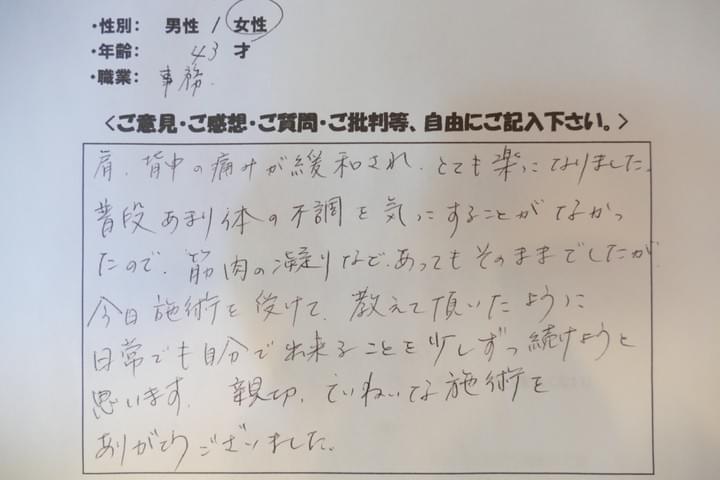 ・性別： 男性 / 女性
・年齢： 43 才
・職業： 事務.
＜ご意見・ご感想・ご質問・ご批判等、自由にご記入下さい。＞
肩、背中の痛みが緩和され、とても楽になりました。
普段あまり体の不調を気にすることがなかっ
たので、筋肉の凝りなど、あってもそのままでしたが、
今日施術を受けて、教えて頂いたように
日常でも自分で出来ることを少しずつ続けようと
思います。 親切、ていねいな施術を
ありがとうございました。